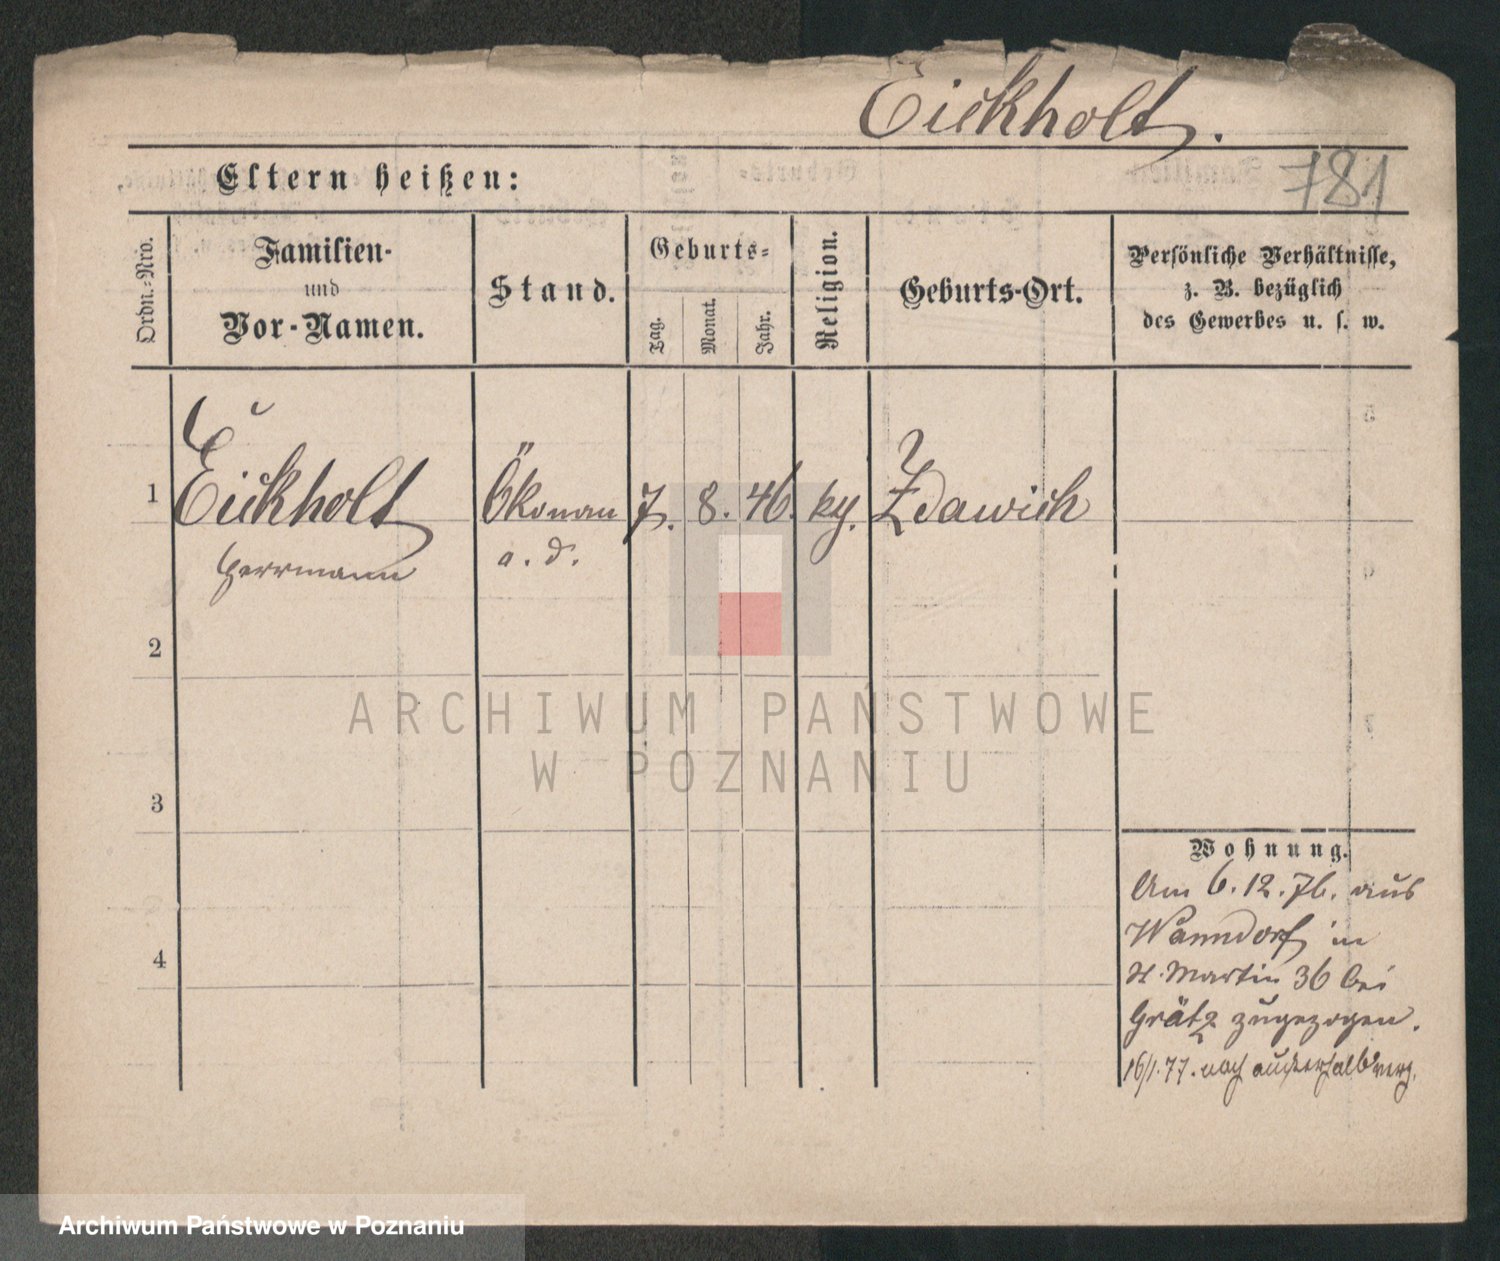 Eickholt.
781
Eltern heißen:
Ordn.-Nro.
Familien-
und
Vor-Namen.
Stand.
Geburts-
Tag.
Monat.
Jahr.
Religion.
Geburts-Ort.
Persönliche Verhältnisse,
z. B. bezüglich
des Gewerbes u. s. w.
1 Eickholt Ökonom 7. 8. 46. Zdawich
Herrmann a. d.
2
ARCHIWUM PAŃSTWOWE
W POZNANIU
3
Wohnung.
Am 6.12.76. aus
Wanndorf in
St. Martin 36 bei
4
Grätz zugezogen.
16/1.77. nach außerhalb verz.
Archiwum Państwowe w Poznaniu